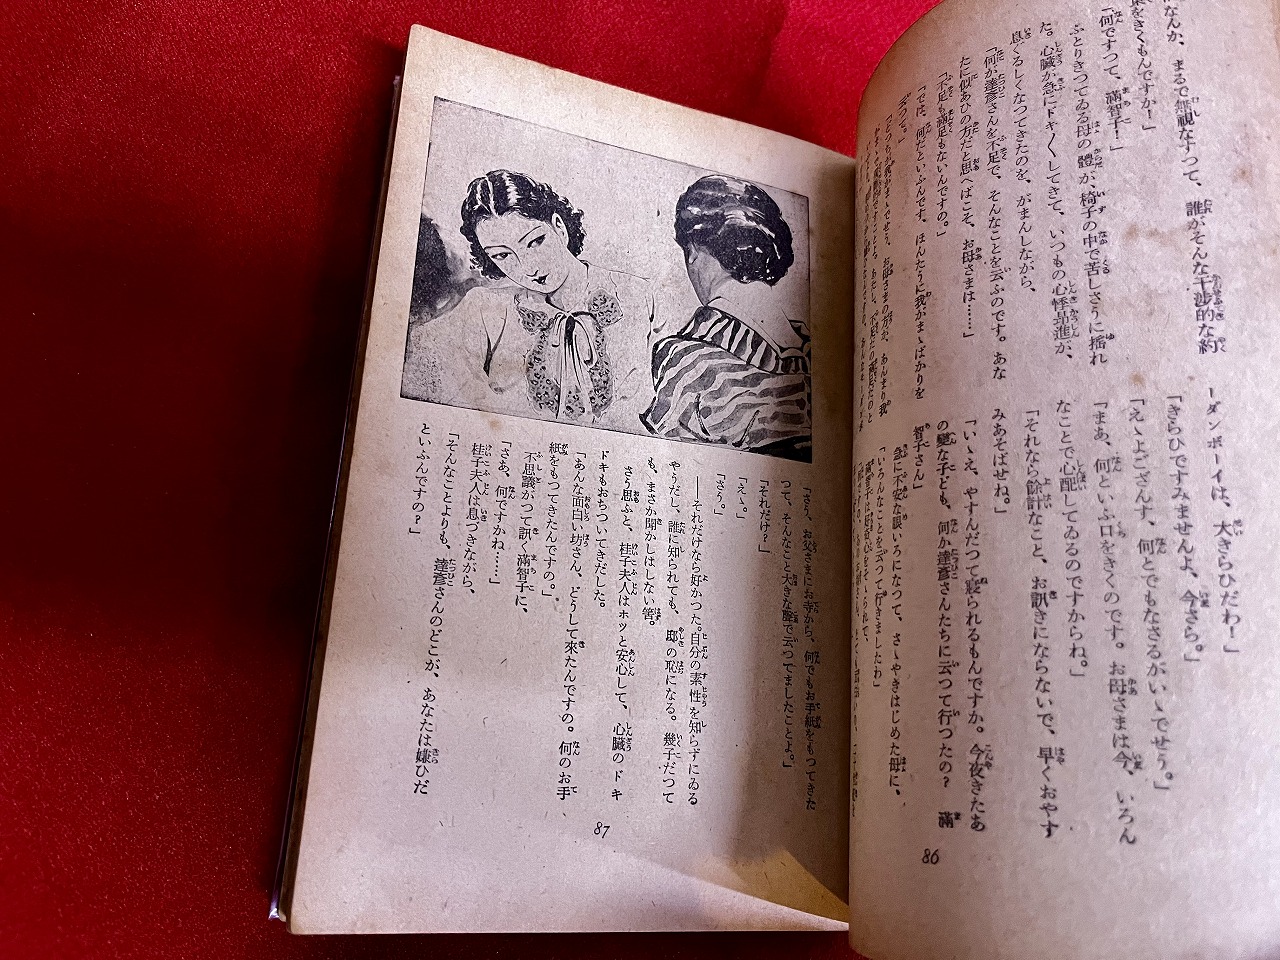 なんか、まるで無視なすつて、誰がそんな干渉的な約
をきくもんですか！」
「何ですつて、滿智子！」
ふとりきつてゐる母の體が、椅子の中で苦しさうに搖れ
た。心臓が急にドキ〱してきて、いつもの心悸昻進が、
息ぐるしくなつてきたのを、がまんしながら、
「何か達彦さんを不足で、そんなことを云ふのです。あな
たに似あひの方だと思へばこそ、お母さまは……」
「不足も滿足もないんですの。」
「では、何だといふんです。ほんたうに我がまゝばかりを
云つて。」
ーダンボーイは、大きらひだわ！」
「きらひですみませんよ、今さら。」
「えゝよござんす、何とでもなさるがいゝでせう。」
「まあ、何といふ口をきくのです。お母さまは今、いろん
なことで心配してゐるのですからね。」
「それなら餘計なこと、お訊きにならないで、早くおやす
みあそばせね。」
「いゝえ、やすんだつて寢られるもんですか。今夜きたあ
の變な子ども、何か達彦さんたちに云つて行つたの？　滿
智子さん」
急に不安な眼いろになつて、さゝやきはじめた母に、
「いろんなことを云つて行きましたわ」
86
「さう、お父さまにお寺から、何でもお手紙をもつてきた
つて、そんなこと大きな聲で云つてましたことよ。」
「それだけ？」
「えゝ。」
「さう。」
――それだけなら好かつた。自分の素性を知らずにゐる
やうだし、誰に知られても、邸の恥になる。幾子だつて
も、まさか聞かしはしない筈。
さう思ふと、桂子夫人はホッと安心して、心臓のドキ
ドキもおちついてきだした。
「あんな面白い坊さん、どうして來たんですの。何のお手
紙をもつてきたんですの。」
不思議がつて訊く滿智子に、
「さあ、何ですかね……」
桂子夫人は息づきながら、
「そんなことよりも、達彦さんのどこが、あなたは嫌ひだ
といふんですの？」
87